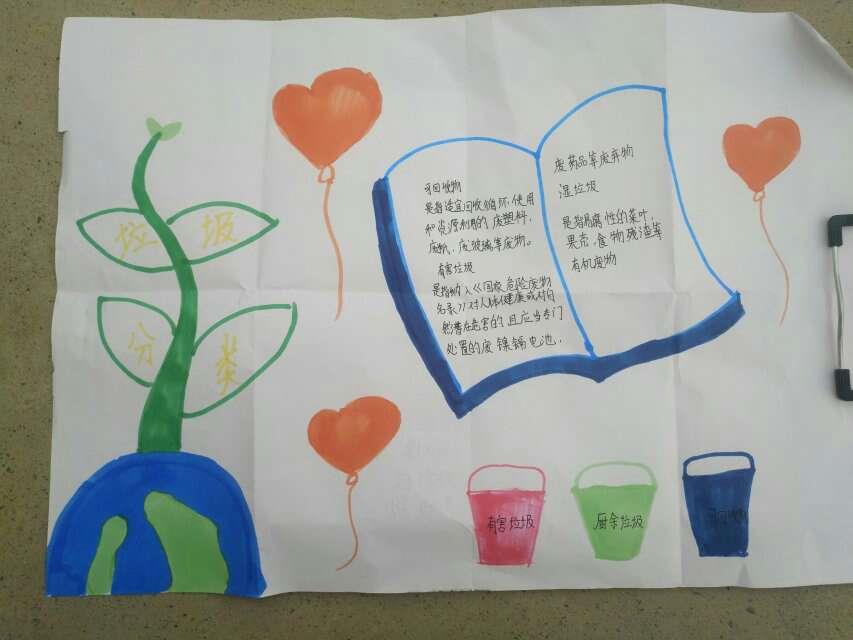 垃圾
分类
可回收物
是指适宜回收循环使用
和资源利用的废塑料,
废纸、废玻璃等废物。
有害垃圾
是指纳入《国家危险废物
名录》对人体健康或对自
然潜在危害的且应当专门
处置的废镍镉电池,
废药品等废弃物
湿垃圾
是指易腐性的菜叶,
果壳、食物残渣等
有机废物
有害垃圾
厨余垃圾
可回收物